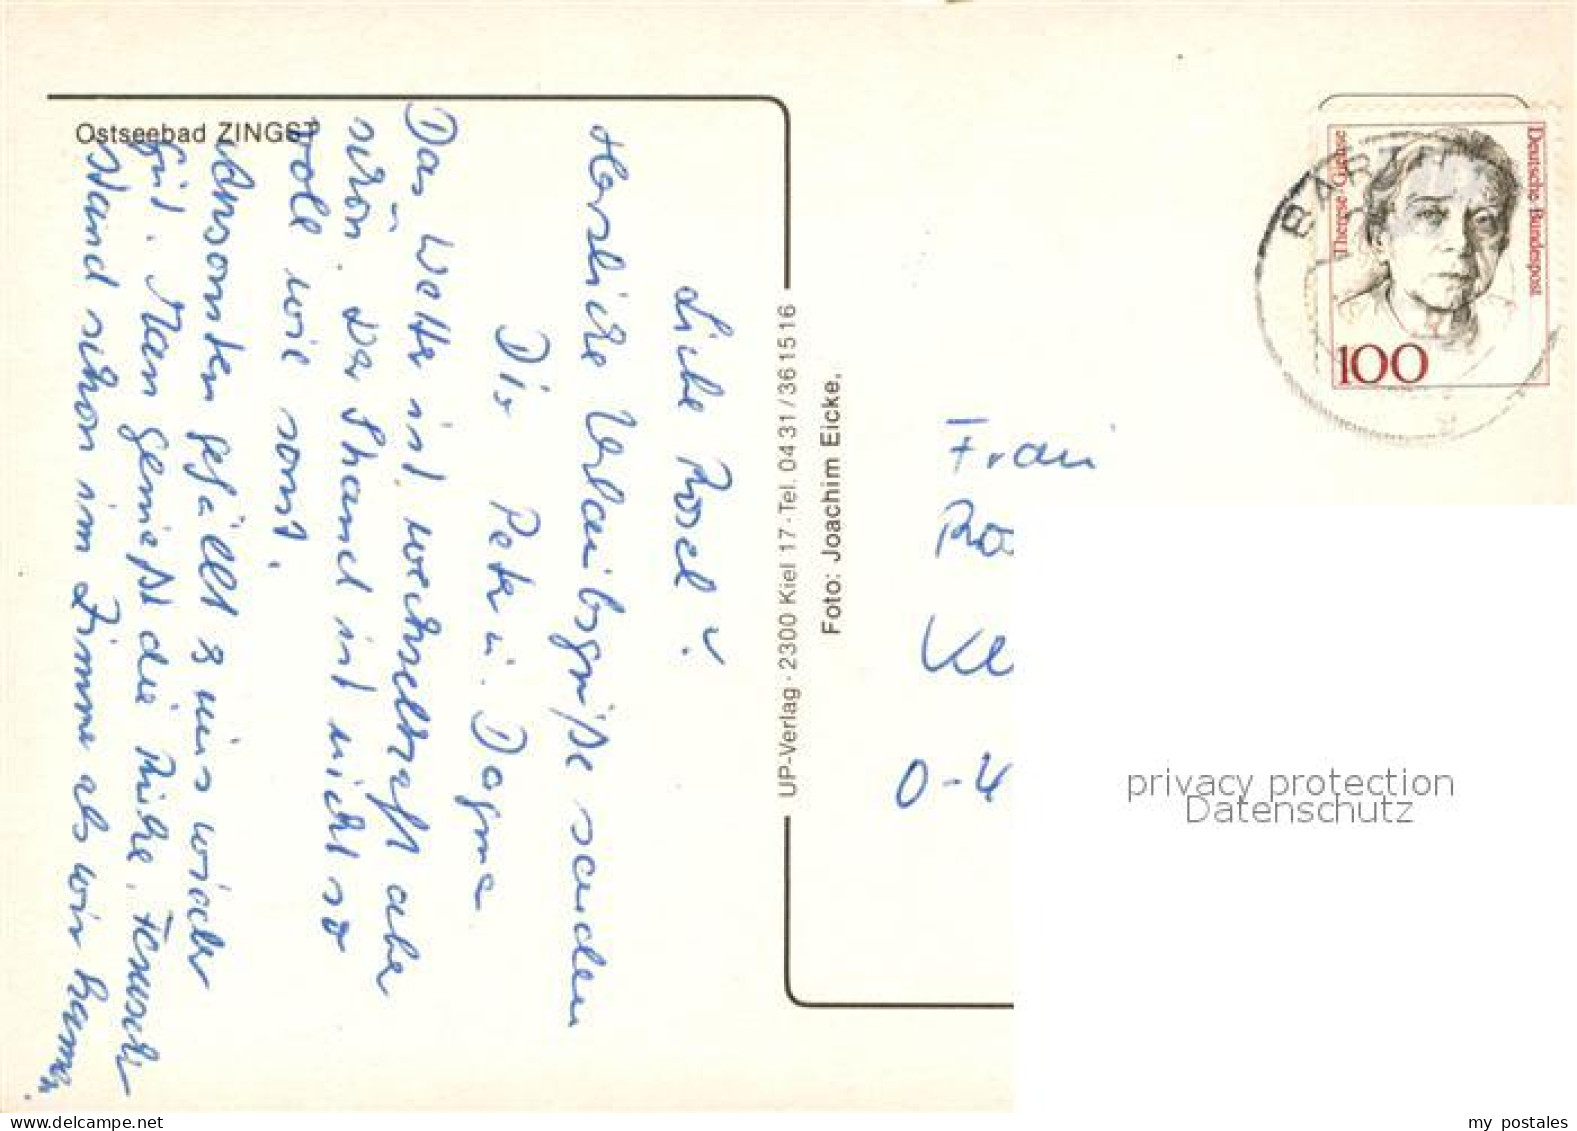 Ostseebad ZINGST
Liebe Rosel!
Herzliche Urlaubsgrüße senden
Dir Peter u. Dagmar
Das Wetter ist wechselhaft aber
schön. Der Strand ist nicht so
voll wie sonst.
Ansonsten gefällt's uns wieder
gut. Man genießt die Ruhe. Fernseher
stand schon im Zimmer als wir kamen.
UP-Verlag · 2300 Kiel 17 · Tel. 04 31 / 36 15 16
Foto: Joachim Eicke,
BARTH
Therese Giehse
Deutsche Bundespost
100
Frau
Rö
Ke
O-4
privacy protection
Datenschutz
www.delcampe.net
my_postales